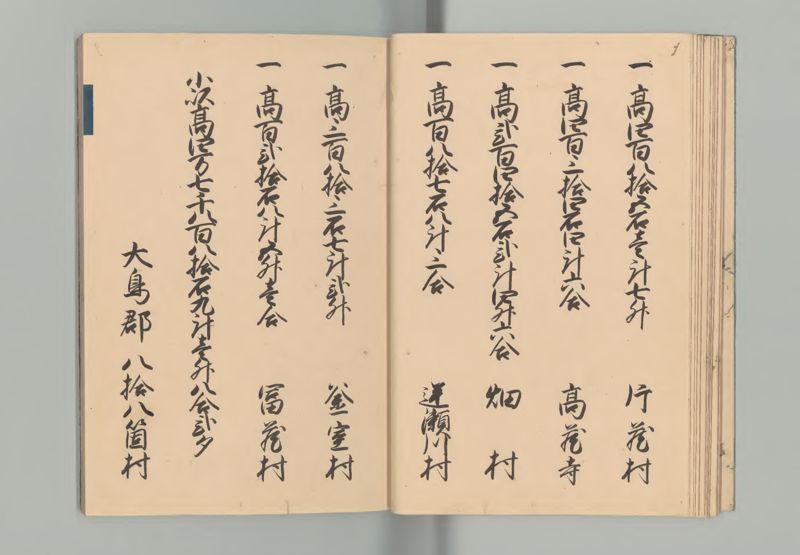 一 高四百八拾五石壱斗七升 片茂村
一 高四百三拾四石四斗六合 高茂寺
一 高弐百四拾五石弐斗四升六合 畑村
一 高百八拾七石八斗三合 逆瀬川村
一 高三百八拾三石七斗弐升 釜室村
一 高百弐拾石八斗五升壱合 冨茂村
小以高四万七千八百八拾石九斗壱升八合弐夕
大鳥郡 八拾八箇村